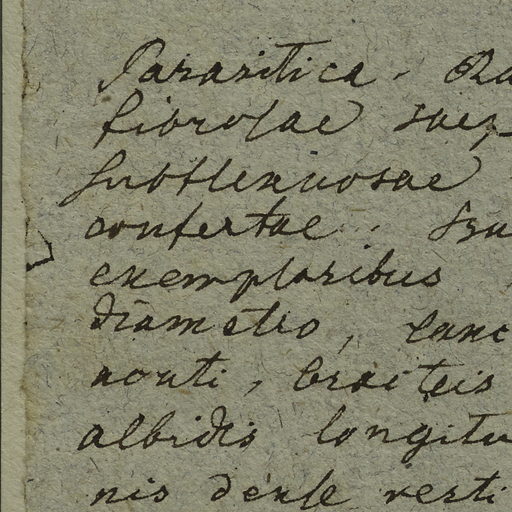 Parasitica. Ra
fibrosae saep
subflexuosae
confertae. Fru
exemplaribus
diametro, lanc
acuti, bracteis
albidis longitu
nis dense verti